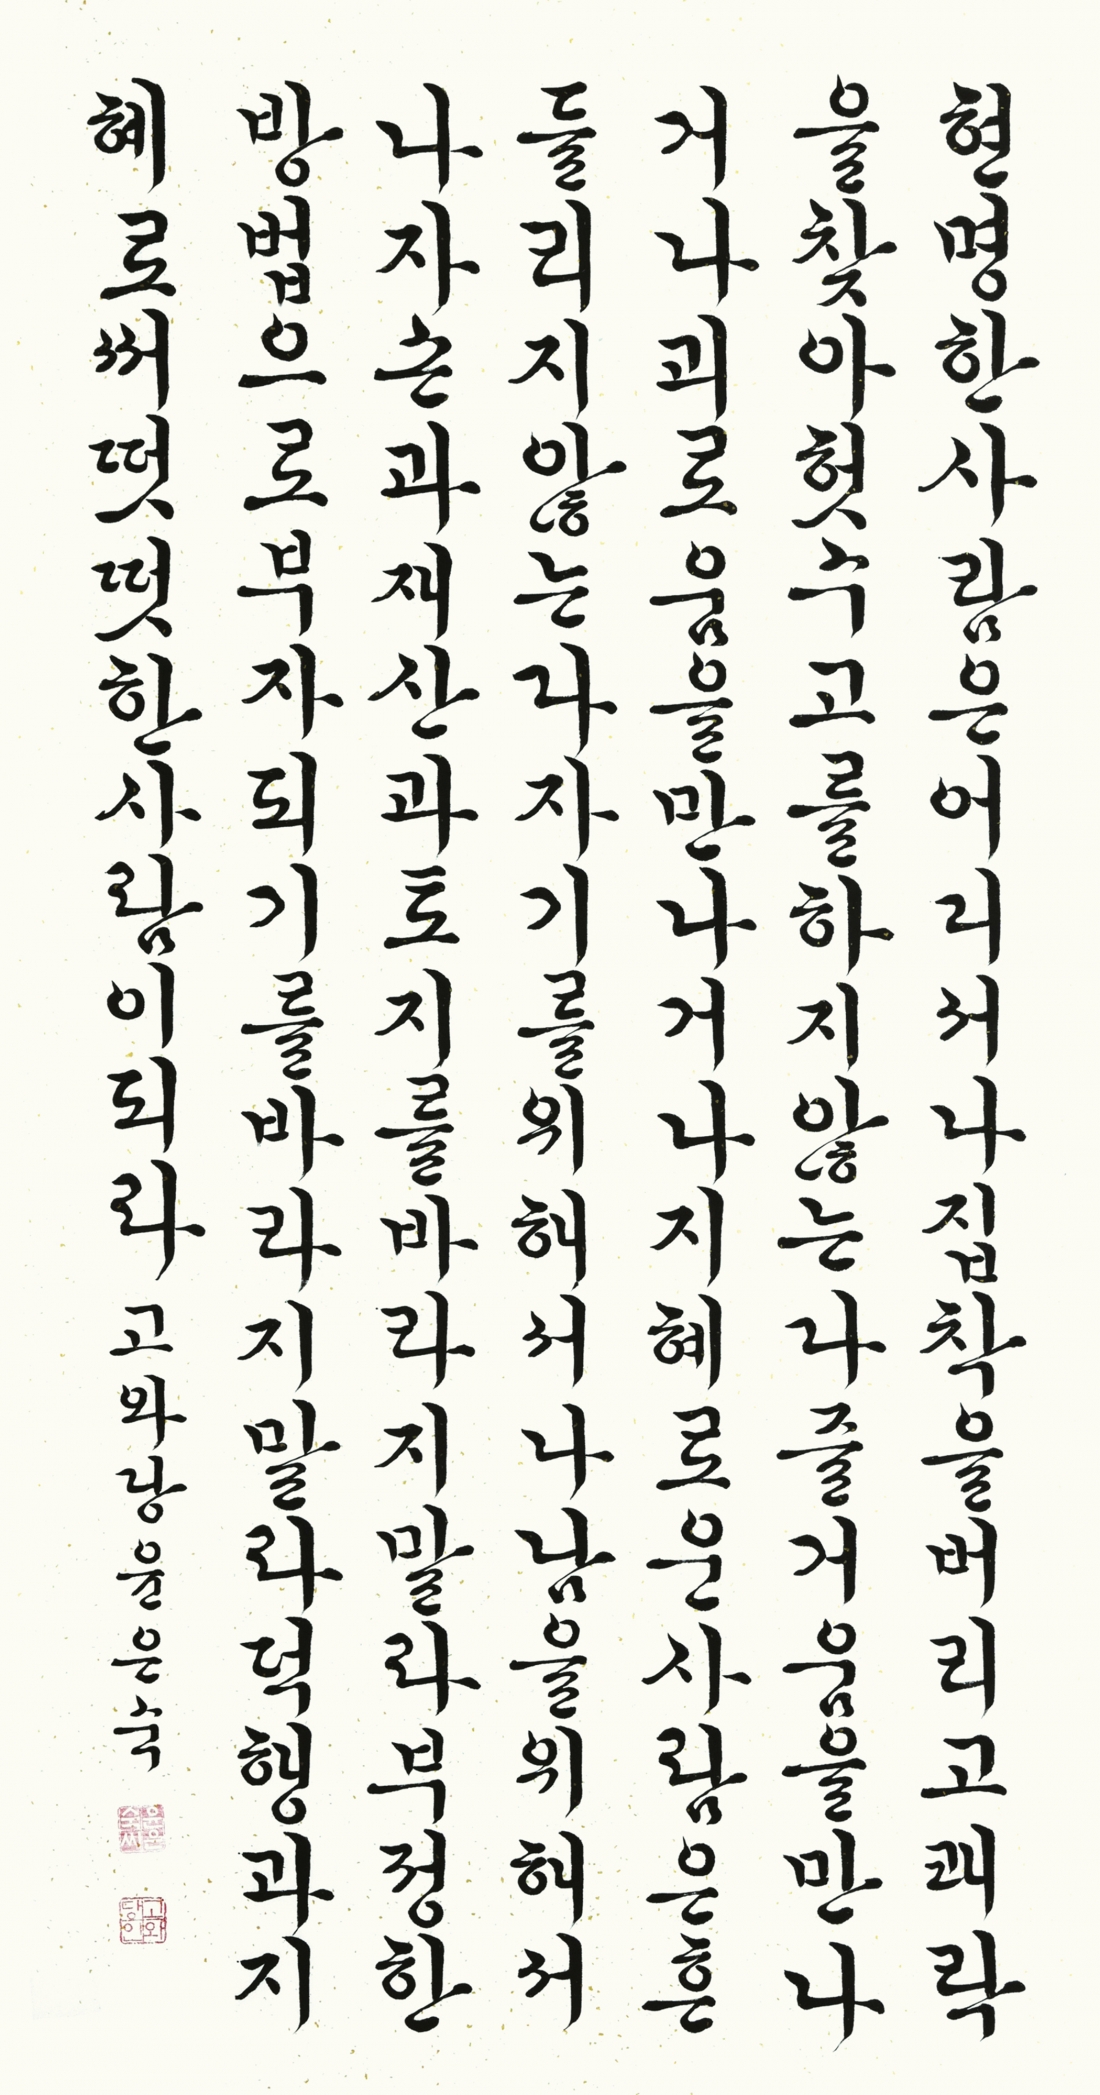 현명한사람은어디서나집착을버리고쾌락
을찾아헛수고를하지않는다즐거움을만나
거나괴로움을만나거나지혜로운사람은흔
들리지않는다자기를위해서나남을위해서
나자손과재산과토지를바라지말라부정한
방법으로부자되기를바라지말라덕행과지
혜로써떳떳한사람이되라 고와당윤은숙